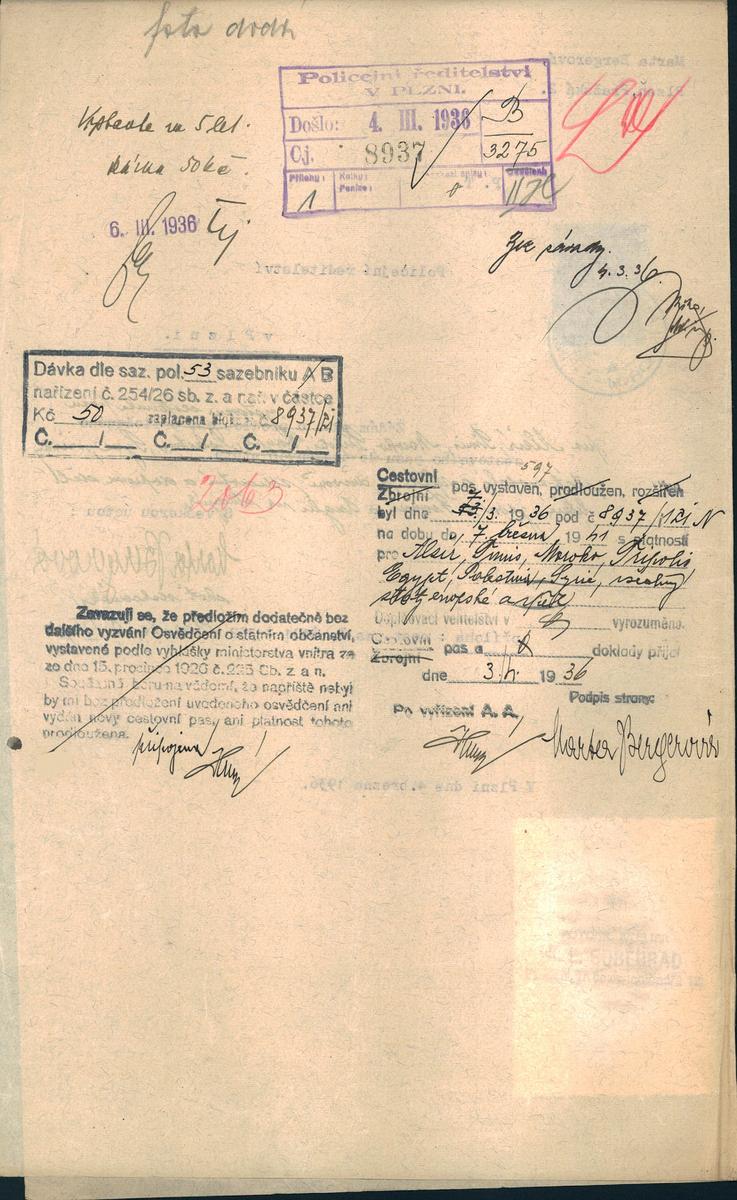 foto dodá
Policejní ředitelství
V PLZNI.
Došlo: 4. III. 1936
Čj. 8937
B
3275
Přílohy: 1
Kolky:
Peníze:
Oddělení:
na 5 let.
dávka 50 Kč.
6. III. 1936
Bez závady.
4. 3. 36.
Dávka dle saz. pol. 53 sazebníku A B
nařízení č. 254/26 sb. z. a nař. v částce
Kč 50 zaplacena č. 8937
Č. / Č. / Č. /
2863
597
Cestovní
Zbrojní pas vystaven, prodloužen, rozšířen
byl dne /3. 1936 pod č 8937
na dobu do 7. března 1941 s platností
pro Alžír, Tunis, Maroko, Tripolis
Egypt, Palestina, Syrie, všechny
státy evropské
Doplňovací velitelství v vyrozuměno.
Cestovní
Zbrojní pas a doklady přijal
dne 3./4. 1936
Podpis strany:
Po vyřízení A. A.
Marta Bergerová
Zavazuji se, že předložím dodatečně bez
dalšího vyzvání Osvědčení o státním občanství,
vystavené podle vyhlášky ministerstva vnitra ze
ze dne 15. prosince 1926 č. 225 Sb. z. a n.
Současně beru na vědomí, že napříště nebyl
by mi bez předložení uvedeného osvědčení ani
vydán nový cestovní pas, ani platnost tohoto
prodloužena.
připojena